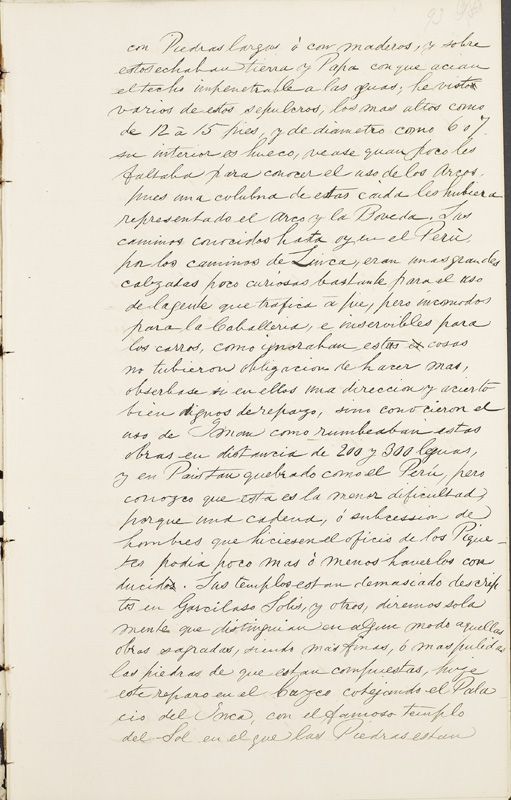 93
con Piedras largas ó con maderos, y sobre
estos echaban tierra y Papa con que acian
el techo impenetrable a las guas; he visto
varios de estos sepulcros, los mas altos como
de 12 à 15 pies, y de diametro como 6 o 7.
su interior es hueco, vease quan poco les
faltaba para conocer el uso de los Arcos,
pues una colubna de estas caida les hubiera
representado el Arco y la Boveda. Sus
caminos conocidos hasta oy en el Perù,
por los caminos de Linca, eran unas grandes
calzadas poco curiosas bastante para el uso
de la gente que trafica à pie, pero incomodos
para la Caballeria, e inservibles para
los carros, como ignoraban estas cosas
no tubieron obligacion de hacer mas,
obserbase si en ellos una direccion y acierto
bien dignos de reparo, sino conocieron el
uso de Iman como rumbeaban estas
obras en distancia de 200 y 300 leguas,
y en Pais tan quebrado como el Perù, pero
conozco que esta es la menor dificultad
porque una cadena, ó subcession de
hombres que hiciesen el oficio de los Pique-
tes podia poco mas ò menos haverlos con
ducido. Sus templos estan demasiado descrip
tos en Garcilaso Solis, y otros, diremos sola
mente que distinguian en algun modo aquellas
obras sagradas, siendo mas finas, ó mas pulidas
las piedras de que estan compuestas, hize
este reparo en el Cuzco cotejando el Pala
cio del Inca, con el famoso templo
del Sol en el que las Piedras estan